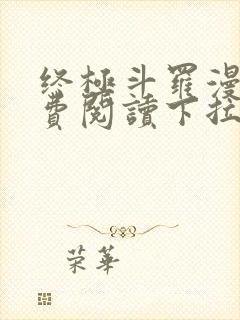 终極斗羅漫
費閱讀下拉
荣華